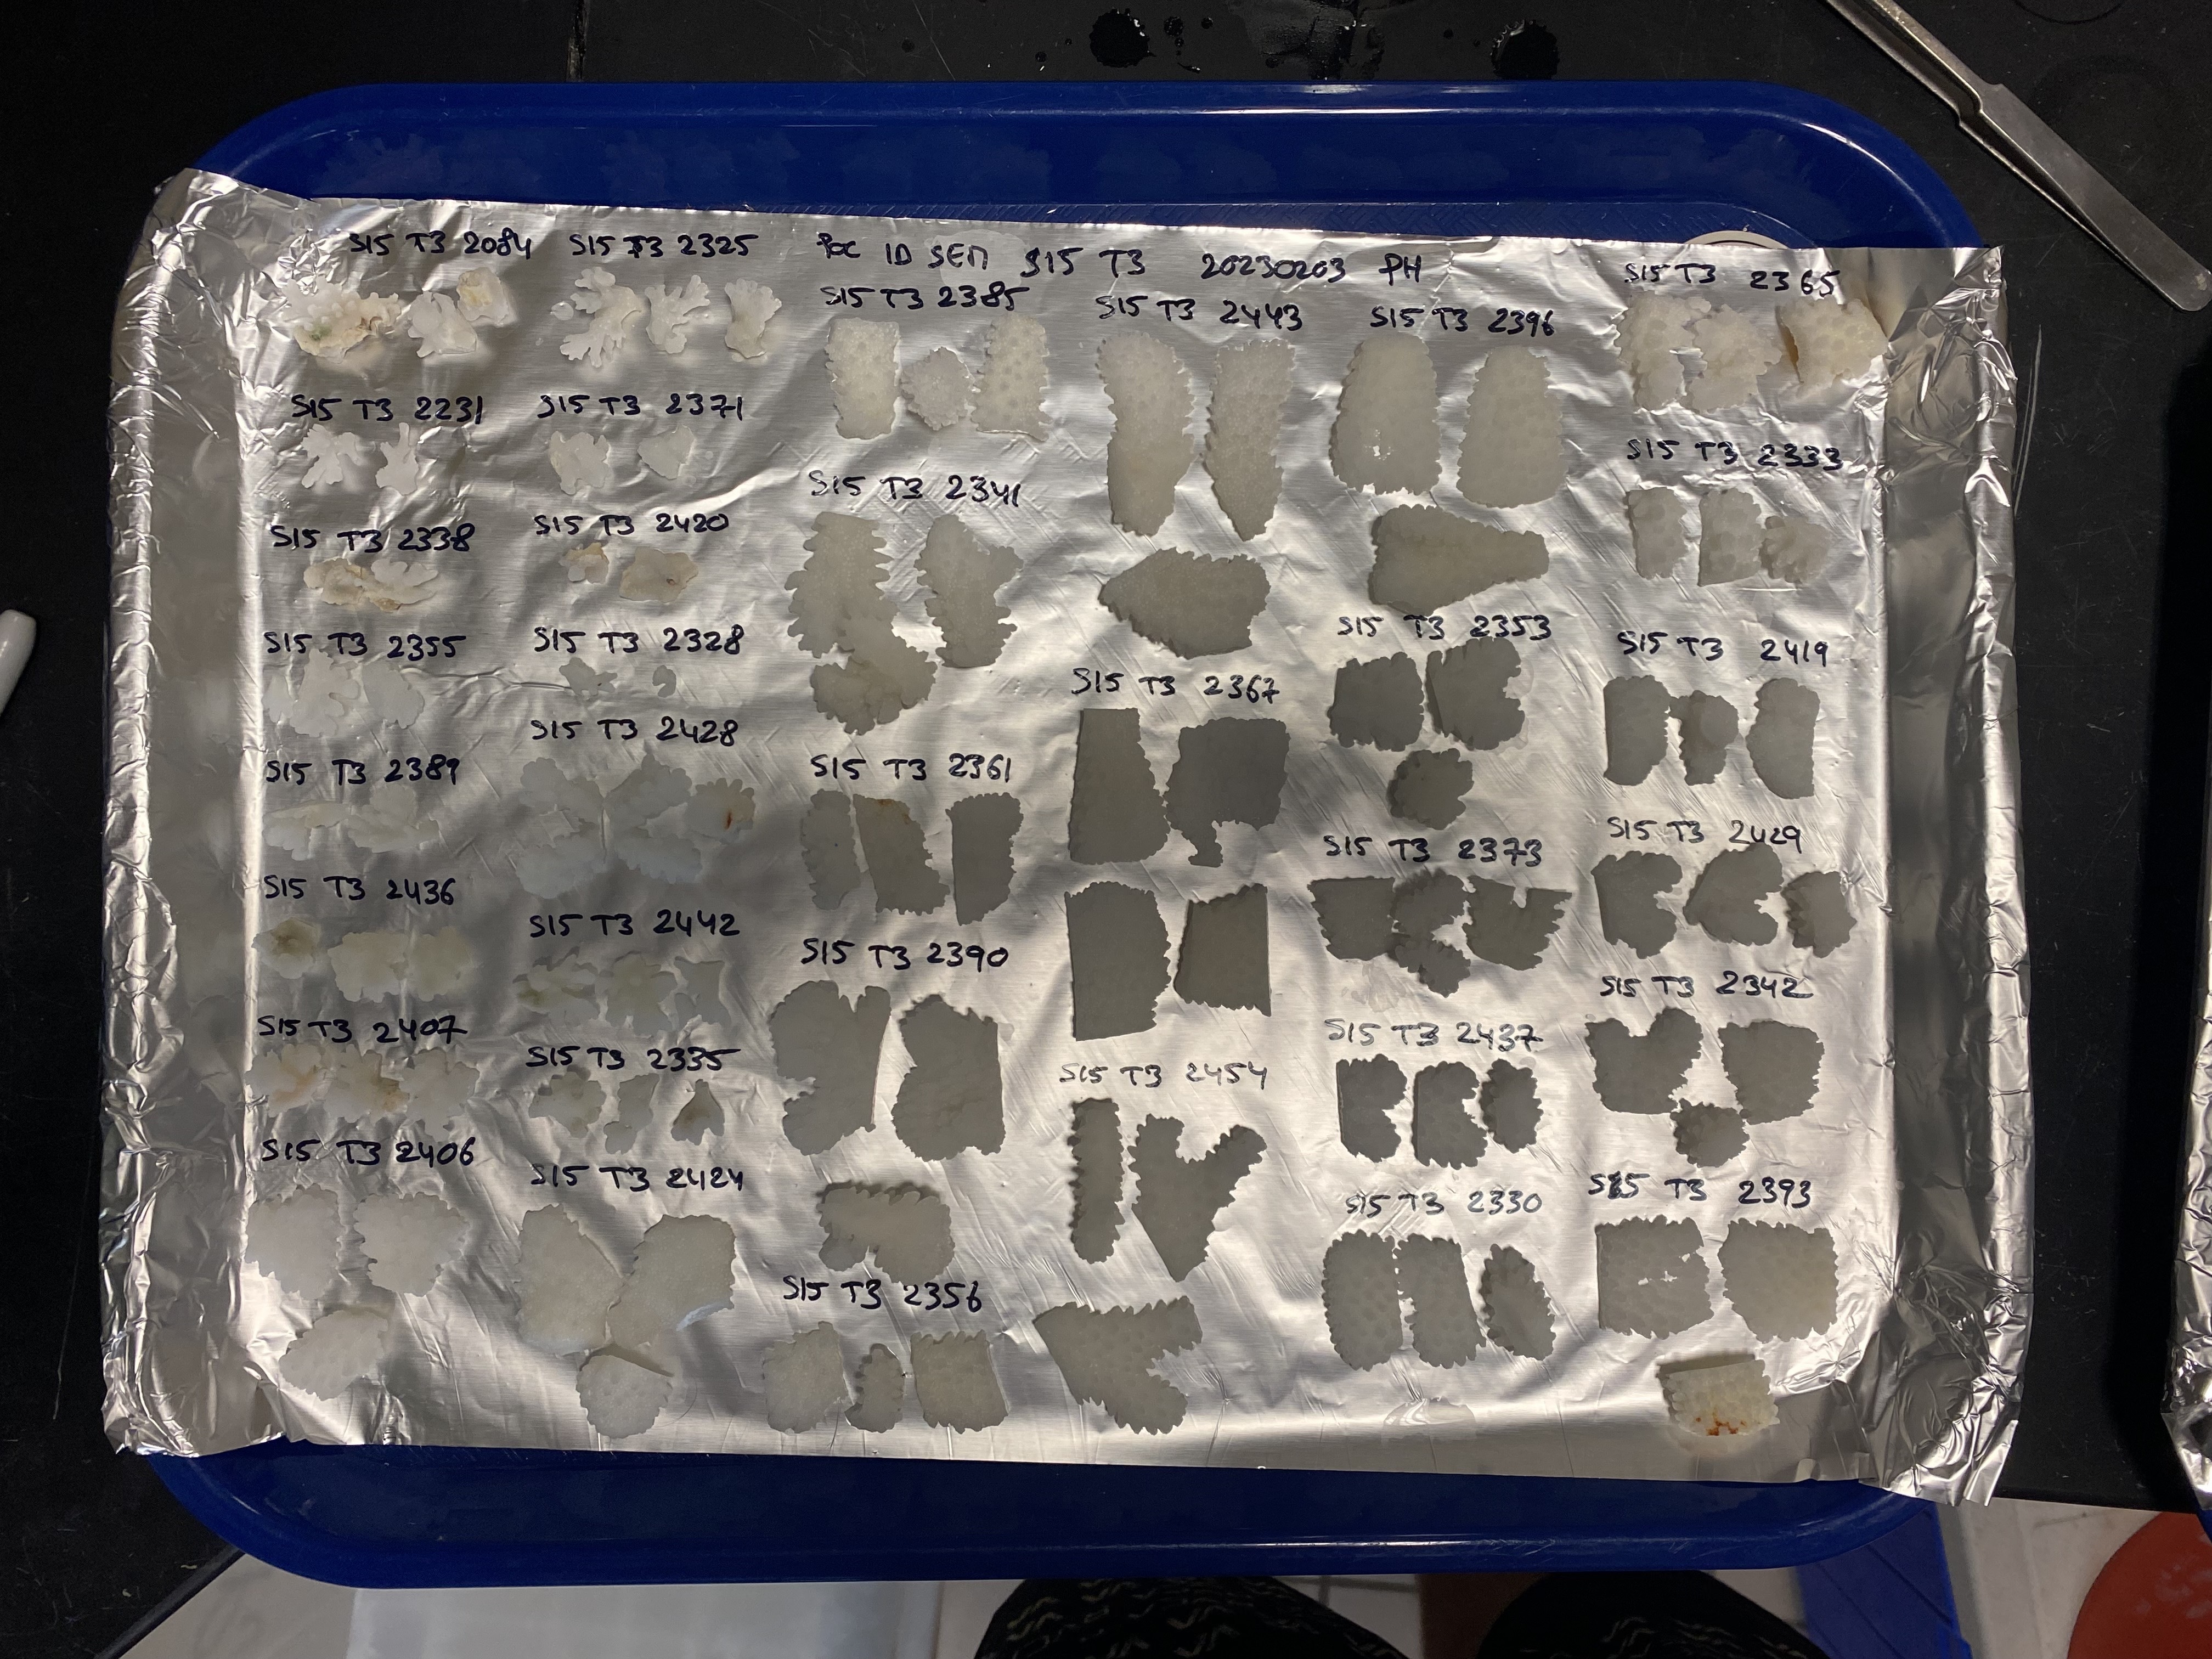 Poc ID SEM S15 T3 20230203 PH
S15 T3 2084
S15 T3 2231
S15 T3 2338
S15 T3 2355
S15 T3 2389
S15 T3 2436
S15 T3 2407
S15 T3 2406
S15 T3 2325
S15 T3 2371
S15 T3 2420
S15 T3 2328
S15 T3 2428
S15 T3 2442
S15 T3 2335
S15 T3 2424
S15 T3 2385
S15 T3 2341
S15 T3 2361
S15 T3 2390
S15 T3 2356
S15 T3 2443
S15 T3 2367
S15 T3 2454
S15 T3 2396
S15 T3 2353
S15 T3 2373
S15 T3 2437
S15 T3 2330
S15 T3 2365
S15 T3 2333
S15 T3 2419
S15 T3 2429
S15 T3 2342
S15 T3 2393